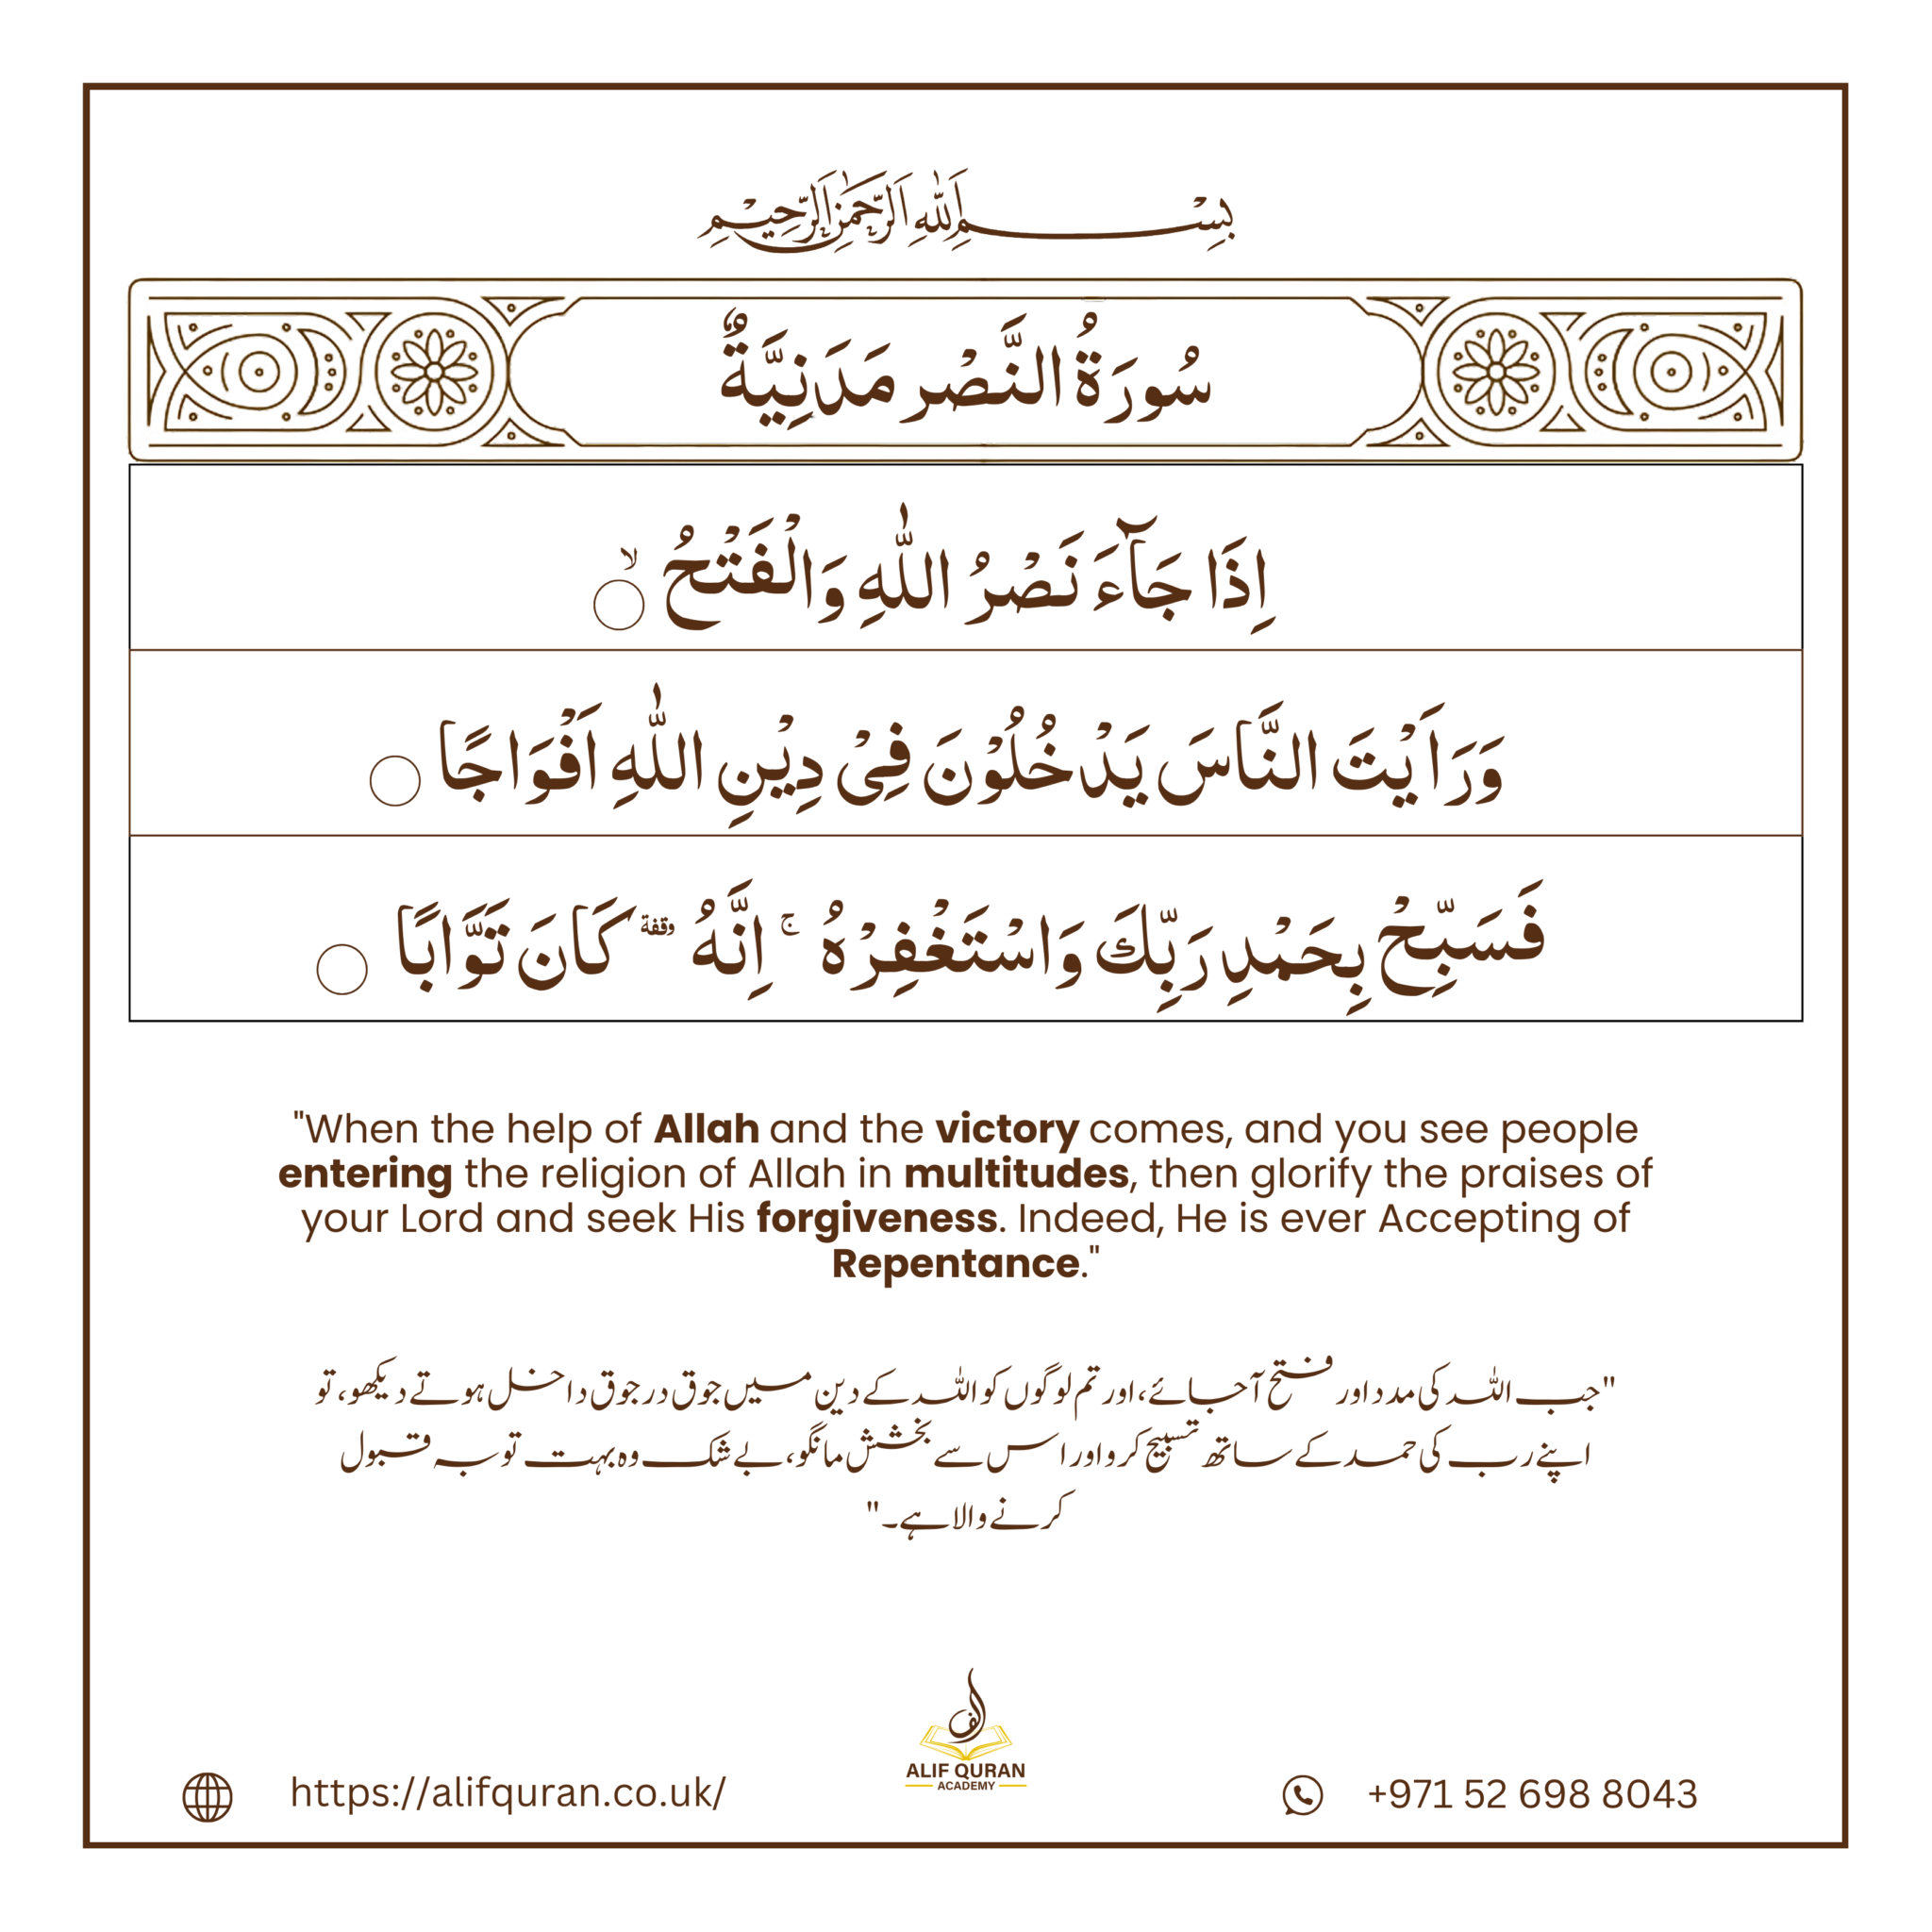 بِسْمِ اللّٰهِ الرَّحْمٰنِ الرَّحِيْمِ
سُورَةُ النَّصْر مَدَنِيَّةٌ
اِذَا جَآءَ نَصْرُ اللّٰهِ وَالْفَتْحُ ۙ
وَرَاَيْتَ النَّاسَ يَدْخُلُوْنَ فِىْ دِيْنِ اللّٰهِ اَفْوَاجًا
فَسَبِّحْ بِحَمْدِ رَبِّكَ وَاسْتَغْفِرْهُ ۚ اِنَّهُ وقفة كَانَ تَوَّابًا
"When the help of Allah and the victory comes, and you see people
entering the religion of Allah in multitudes, then glorify the praises of
your Lord and seek His forgiveness. Indeed, He is ever Accepting of
Repentance."
"جب اللہ کی مدد اور فتح آ جائے، اور تم لوگوں کو اللہ کے دین میں جوق در جوق داخل ہوتے دیکھو، تو
اپنے رب کی حمد کے ساتھ تسبیح کرو اور اس سے بخشش مانگو، بے شک وہ بہت توبہ قبول
کرنے والا ہے۔"
الف
ALIF QURAN
ACADEMY
https://alifquran.co.uk/
+971 52 698 8043